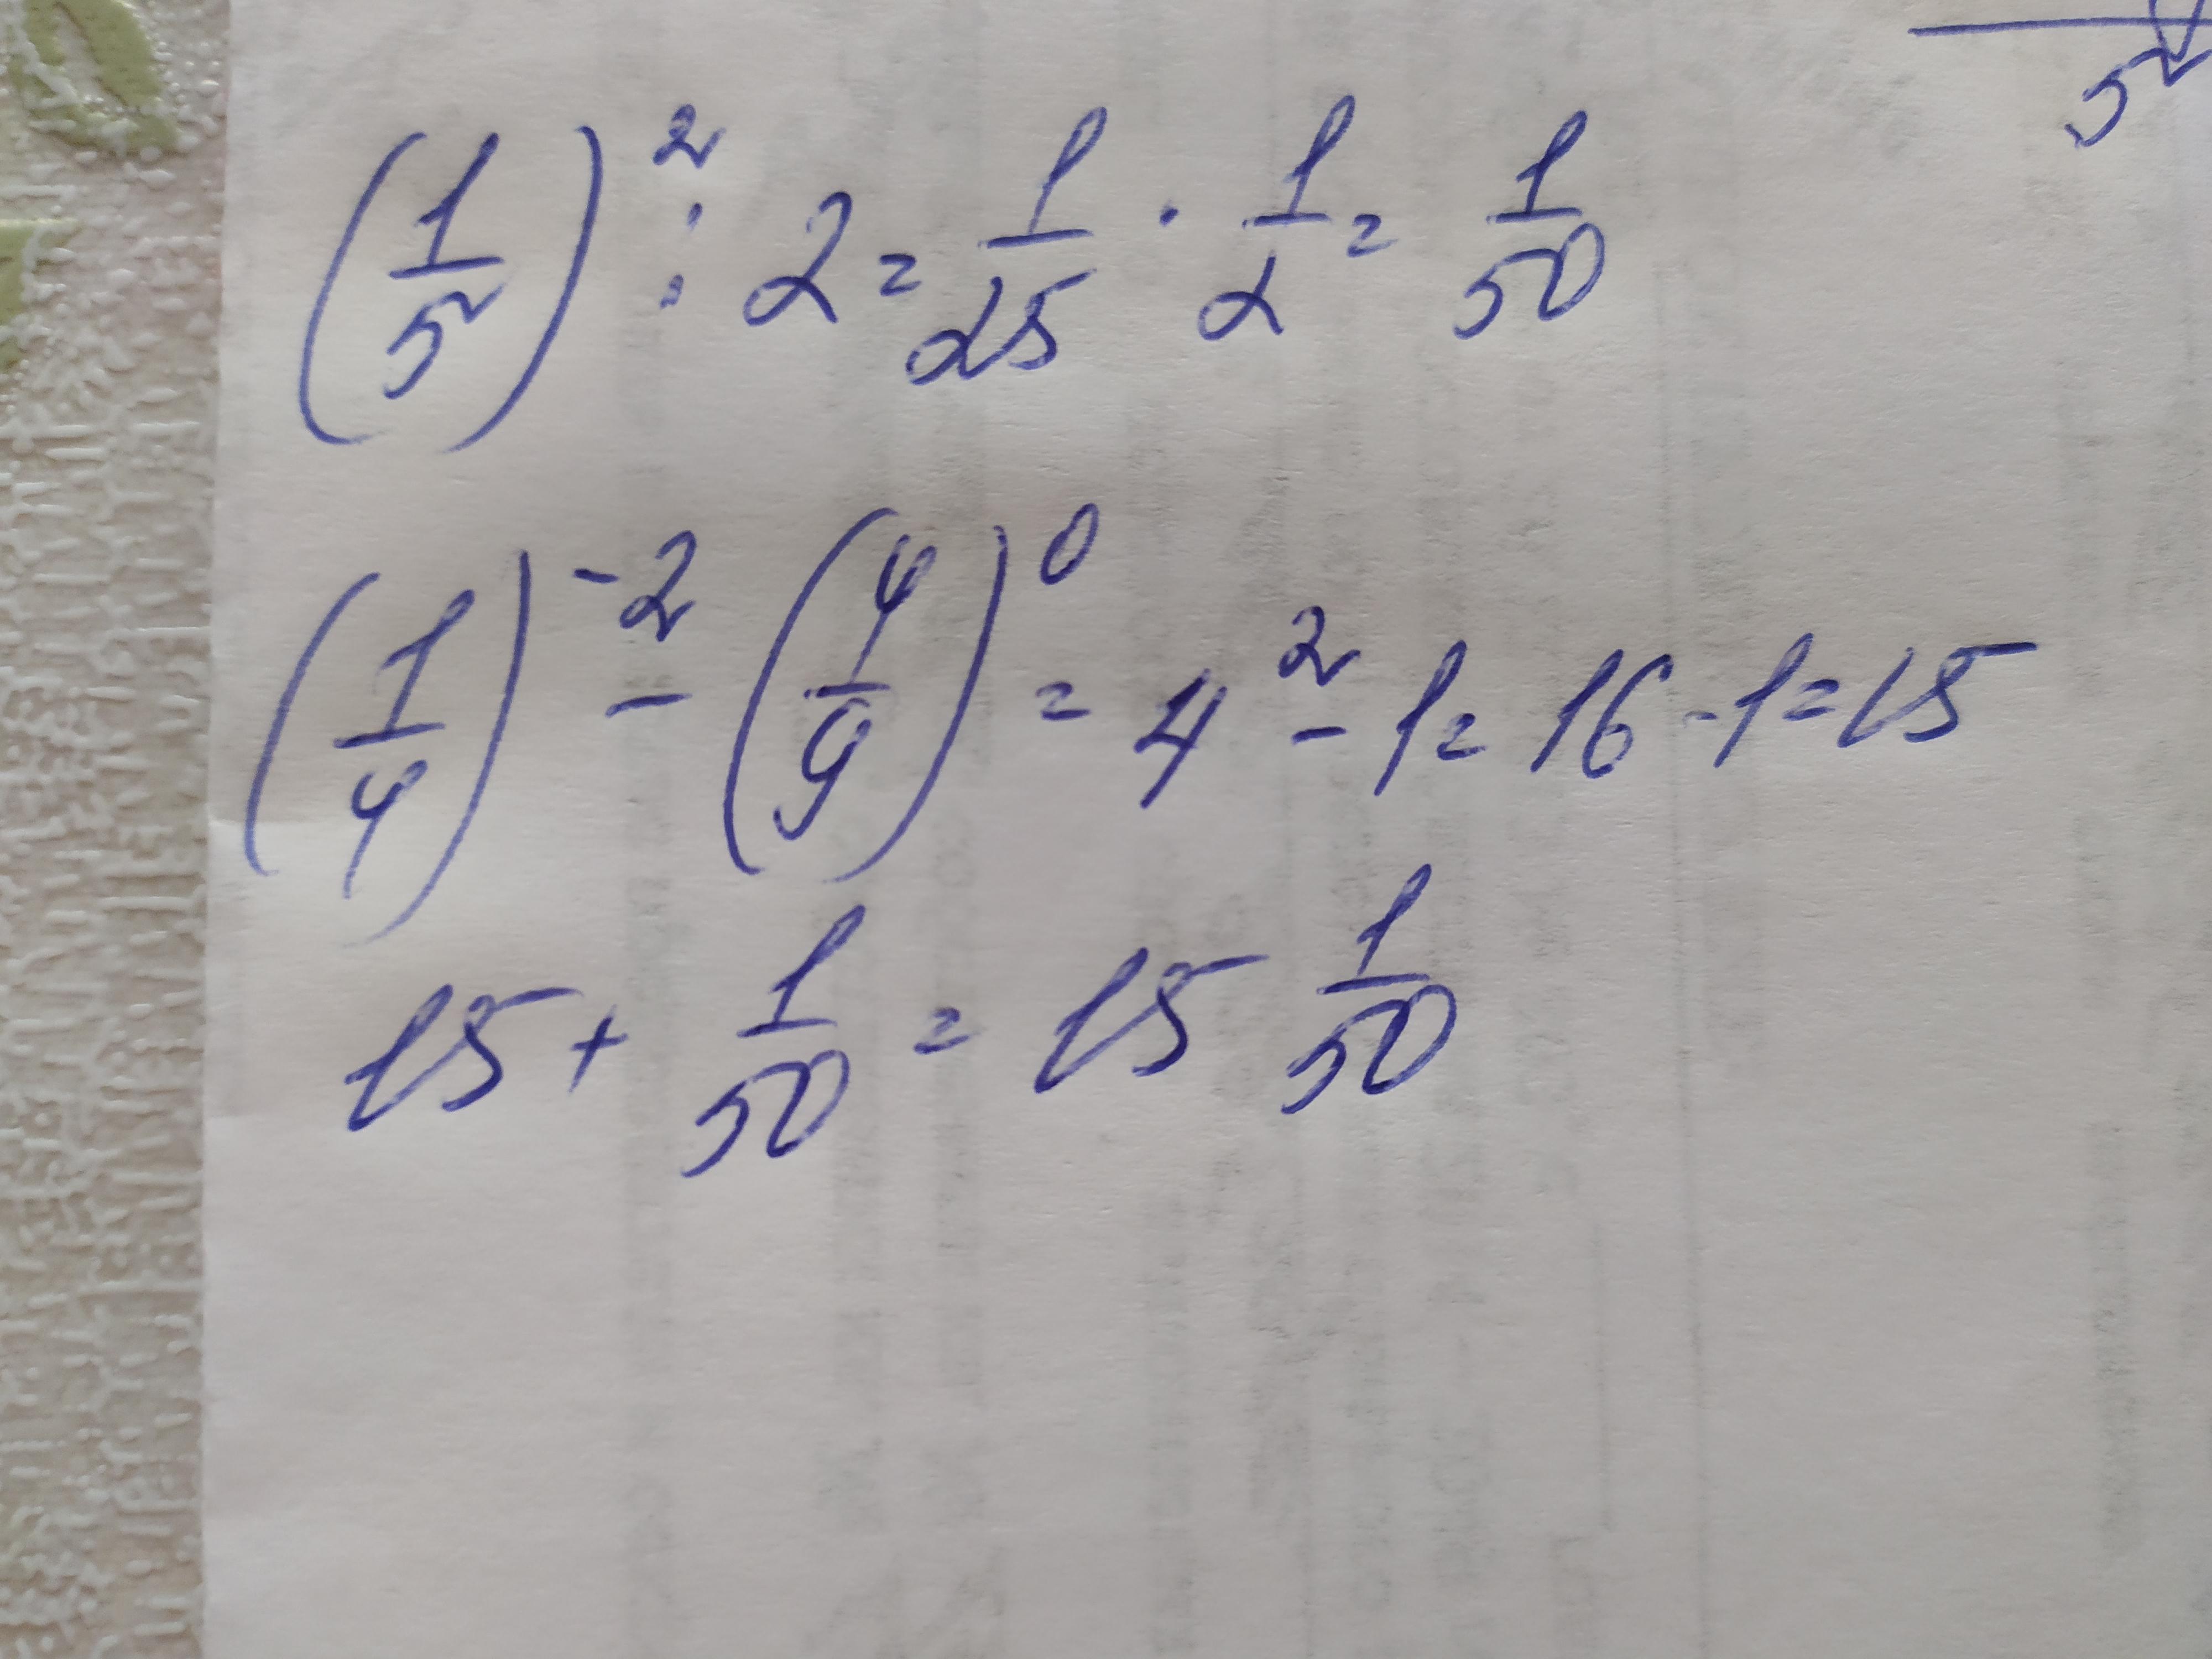 5
(1/5)² : 2 = 1/25 · 1/2 = 1/50
(1/4)⁻² - (4/9)⁰ = 4² - 1 = 16 - 1 = 15
15 + 1/50 = 15 1/50